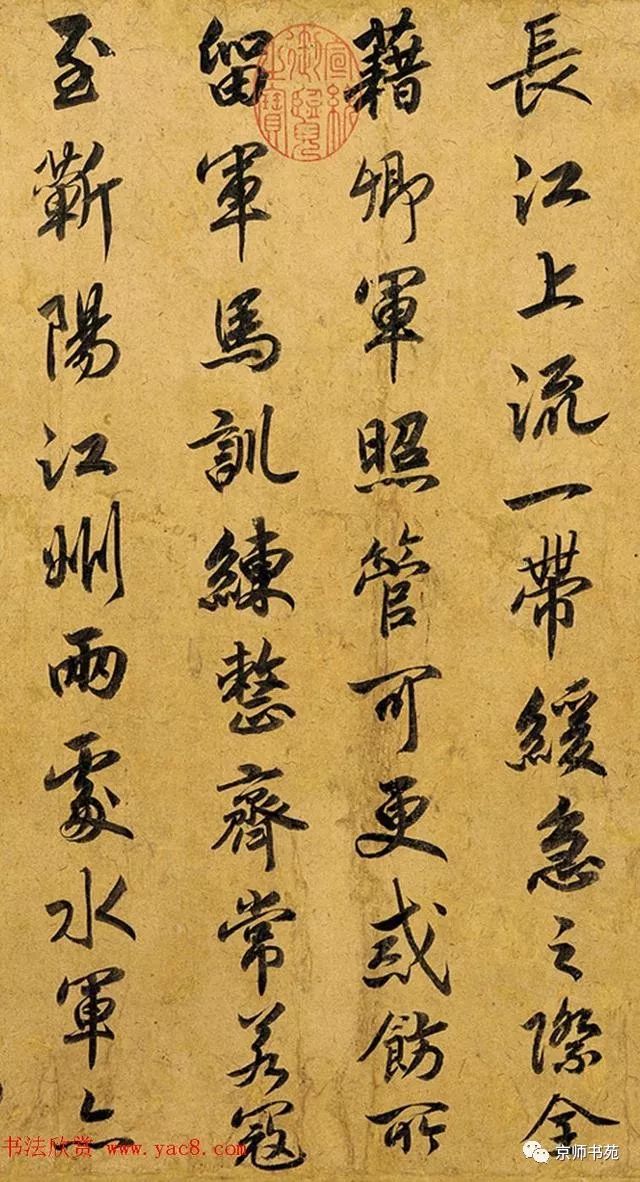 長江上流一帶緩急之際全
藉卿軍照管可更戒飭所
留軍馬訓練整齊常若寇
至蘄陽江州兩處水軍亦
宣統御覽之寶
书法欣赏 www.yac8.com
京师书苑